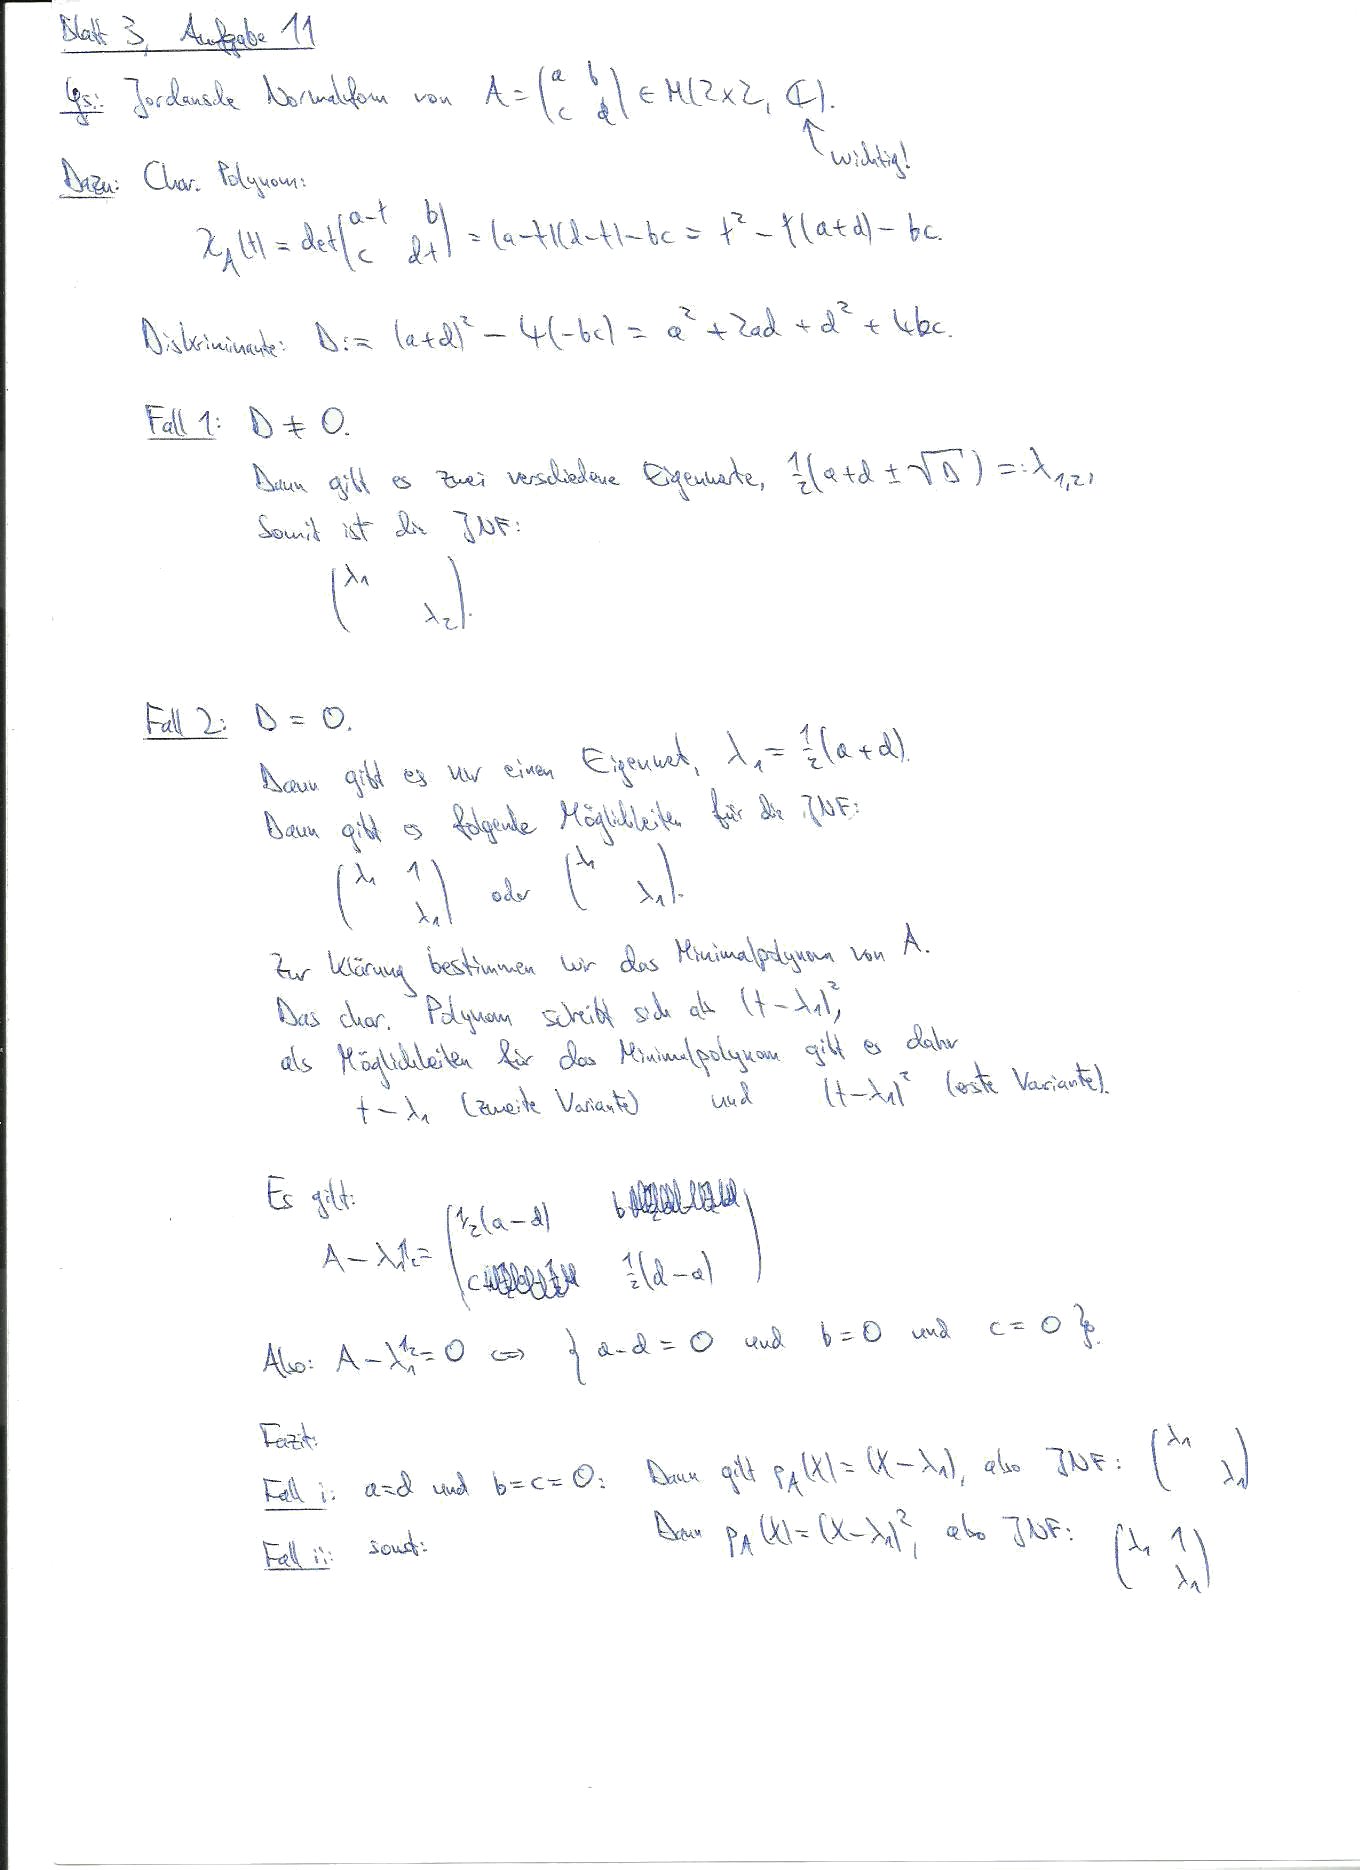 Blatt 3, Aufgabe 11
Ges.: Jordansche Normalform von A = (a b; c d) ∈ M(2×2, ℂ).
↑ wichtig!
Dazu: Char. Polynom:
χ_A(t) = det(a-t b; c d-t) = (a-t)(d-t) - bc = t² - t(a+d) - bc.
Diskriminante: D := (a+d)² - 4(-bc) = a² + 2ad + d² + 4bc.
Fall 1: D ≠ 0.
Dann gibt es zwei verschiedene Eigenwerte, ½(a+d ± √D) =: λ_{1,2},
Somit ist die JNF:
(λ₁ ; λ₂).
Fall 2: D = 0.
Dann gibt es nur einen Eigenwert, λ₁ = ½(a+d).
Dann gibt es folgende Möglichkeiten für die JNF:
(λ₁ 1; λ₁) oder (λ₁ ; λ₁).
Zur Klärung bestimmen wir das Minimalpolynom von A.
Das char. Polynom schreibt sich als (t-λ₁)²,
als Möglichkeiten für das Minimalpolynom gibt es daher
t-λ₁ (zweite Variante) und (t-λ₁)² (erste Variante).
Es gilt:
A - λ₁1₂ = (½(a-d) b; c ½(d-a))
Also: A - λ₁1₂ = 0 ⇔ { a-d = 0 und b = 0 und c = 0 }.
Fazit:
Fall i: a=d und b=c=0: Dann gilt p_A(X) = (X-λ₁), also JNF: (λ₁ ; λ₁)
Fall ii: sonst: Dann p_A(X) = (X-λ₁)², also JNF: (λ₁ 1; λ₁)